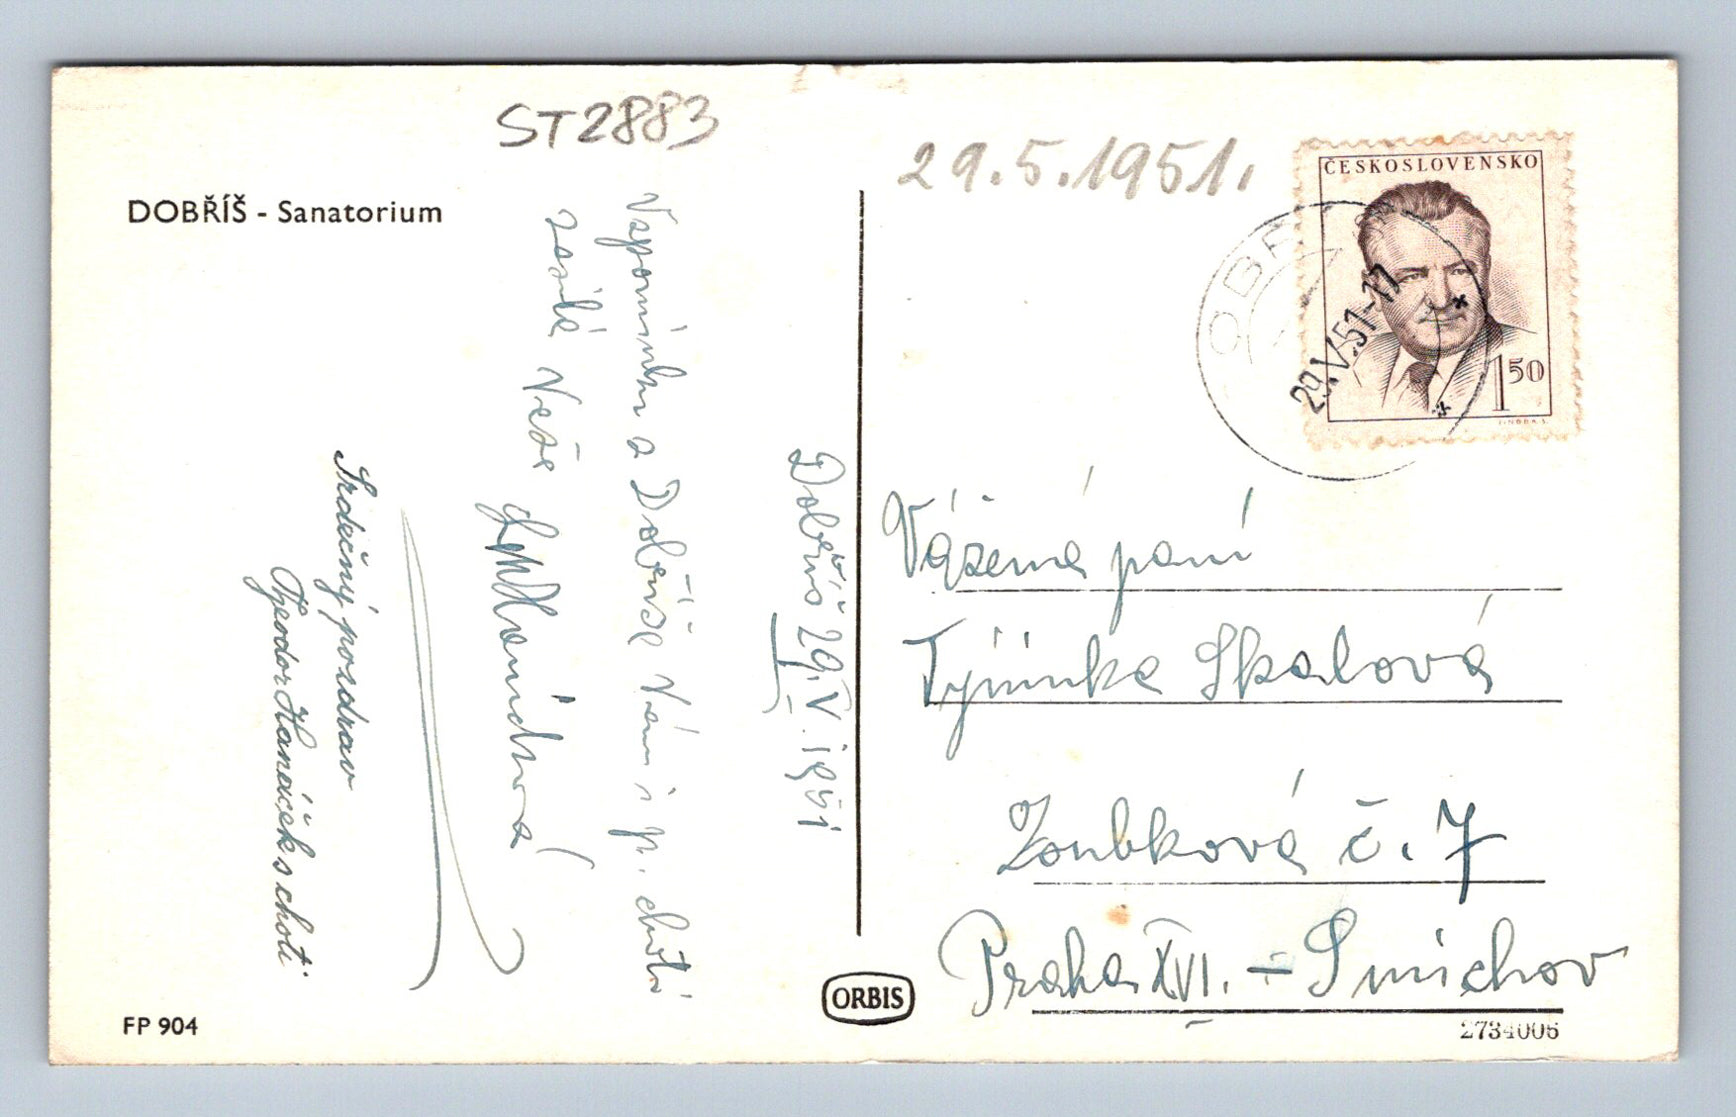 ST2883
29.5.1951.
DOBŘÍŠ - Sanatorium
ČESKOSLOVENSKO
1 50
DOBŘ
29.V.51-17
Dobříš 29.V.1951
Vzpomínku z Dobříše Vám i p. choti
zasílá Vaše
Srdečný pozdrav
Theodor Hanáček s chotí
Vážená paní
Týninka Skalová
Zoubková č. 7
Praha XVI. - Smíchov
ORBIS
FP 904
2734006